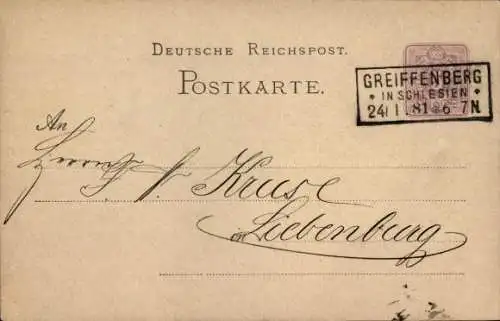 DEUTSCHE REICHSPOST.
POSTKARTE.
GREIFFENBERG
* IN SCHLESIEN *
24/1 81 * 6-7 N.
An
Herrn
Kruse
in Liebenburg